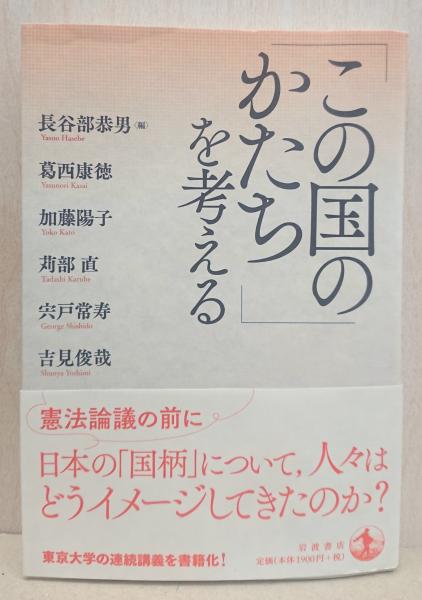 「この国の
かたち」
を考える
長谷部恭男〈編〉
Yasuo Hasebe
葛西康徳
Yasunori Kasai
加藤陽子
Yoko Kato
苅部 直
Tadashi Karube
宍戸常寿
George Shishido
吉見俊哉
Shunya Yoshimi
憲法論議の前に
日本の「国柄」について,人々は
どうイメージしてきたのか?
東京大学の連続講義を書籍化!
岩波書店
定価(本体1900円+税)